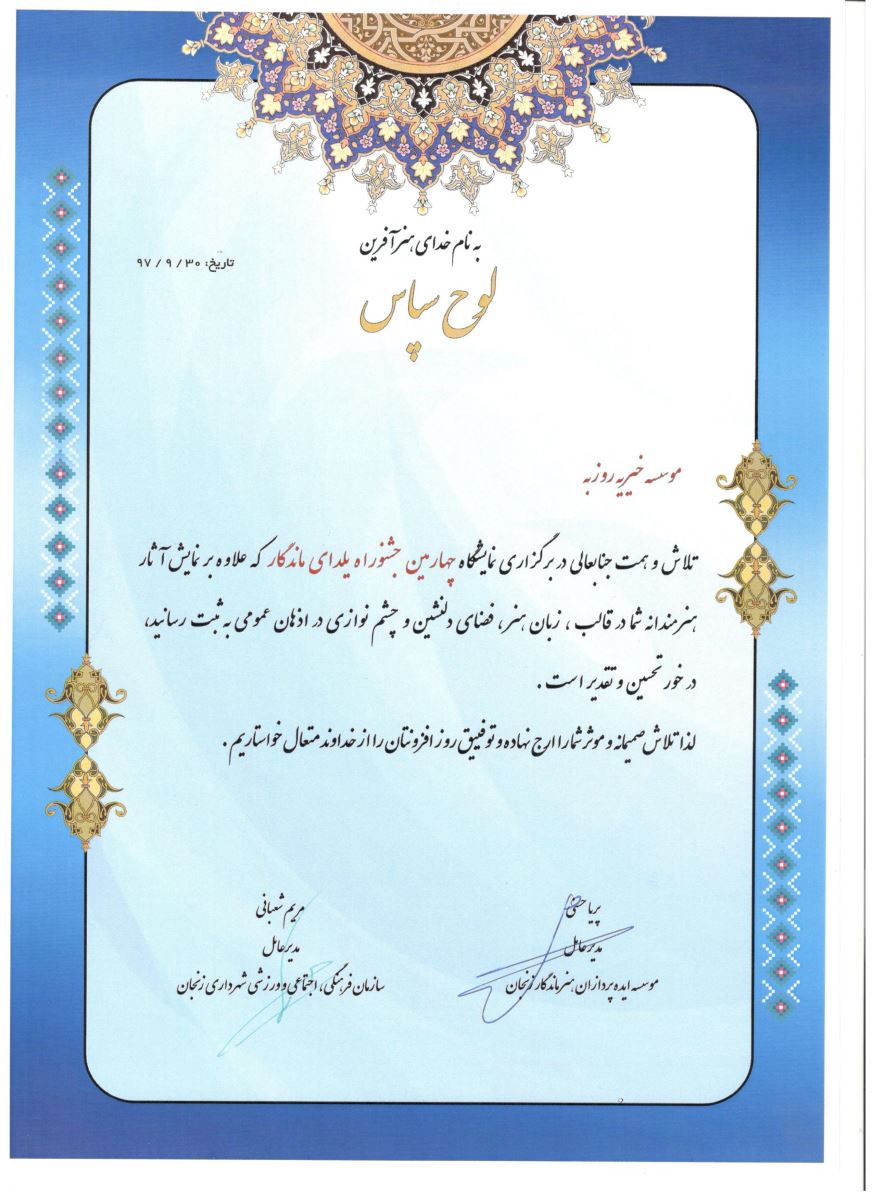 به نام خدای هنرآفرین
تاریخ: ۹۷ / ۹ / ۳۰
لوح سپاس
موسسه خیریه روزبه
تلاش و همت جنابعالی در برگزاری نمایشگاه چهارمین جشنوراه یلدای ماندگار که علاوه بر نمایش آثار
هنرمندانه شما در قالب ، زبان هنر، فضای دلنشین و چشم نوازی در اذهان عمومی به ثبت رسانید،
در خور تحسین و تقدیر است .
لذا تلاش صمیمانه و موثر شما را ارج نهاده و توفیق روز افزونتان را از خداوند متعال خواستاریم .
پریا
مدیرعامل
موسسه ایده پردازان هنر ماندگار زنجان
مریم شعبانی
مدیرعامل
سازمان فرهنگی، اجتماعی و ورزشی شهرداری زنجان